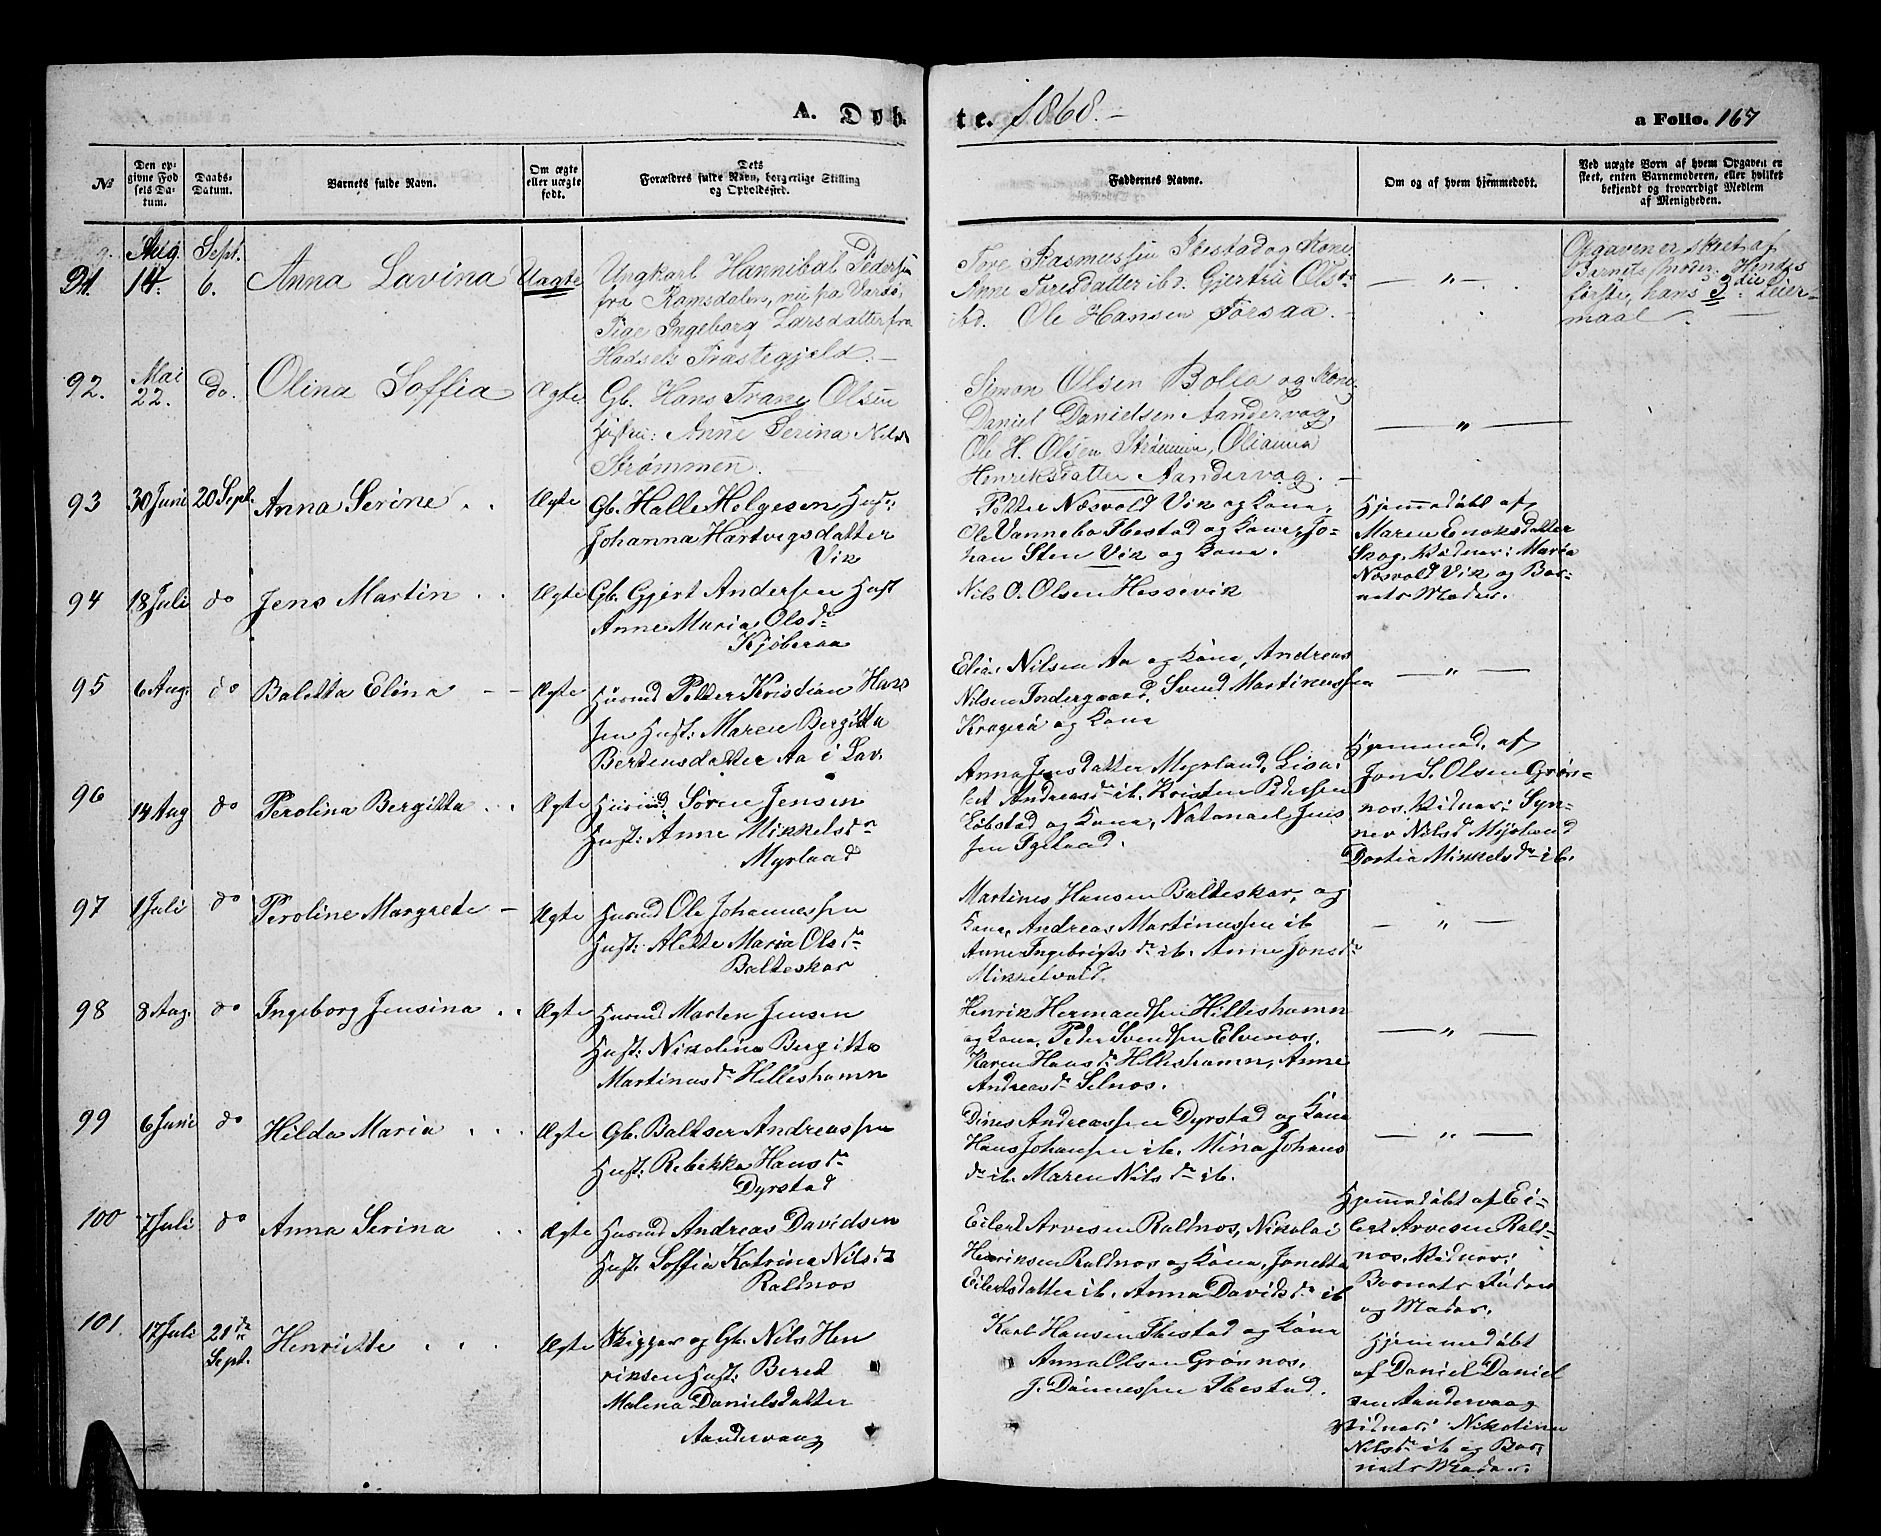 A. Døb
te. 1868.-
a Folio. 167
№
Den op-
givne Fød
sels Da-
tum.
Daabs-
Datum.
Barnets fulde Navn.
Om ægte
eller uægte
født.
Dets
Forældres fulde Navn, borgerlige Stilling
og Opholdssted.
Faddernes Navne.
Om og af hvem hjemmedøbt.
Ved uægte Børn af hvem Opgaven er
skeet, enten Barnemoderen, eller hvilket
bekjendt og troværdigt Medlem
af Menigheden.
91. Aug. 14. Sept. 6. Anna Lavina Uægte
Ungkarl Hannibal Pedersen
fra Ramsdalen, nu paa
Pige Ingeborg Larsdatter fra
Hadsels Præstegjeld. -
Tore Rasmussen Ibestad og Kone,
Anne Toresdatter ibd. Gjertru Olsd.
ibd. Ole Hansen Forsaa. -
— " —
Opgaven er skeet af
Barnets Moder. Hendes
første, hans 3die Leier-
maal. —
92. Mai 22. do. Olina Soffia Ægte
Gb. Hans Trane Olsen
Hustru: Anne Serina Nilsd.
Strømmen. -
Simon Olsen Bolla og Kone,
Daniel Danielsen Aandervag,
Ole H. Olsen Strømmen, Olianna
Henriksdatter Aandervag. -
— " —
93 30 Juni 20 Sept. Anna Serine . . Ægte
Gb. Halle Helgesen Hust:
Johanna Hartvigsdatter
Vik
Petter Næsvold Vik og Kone,
Ole Vannebo Ibestad og Kone, Jo-
han Sten Vik og Kone.
Hjemmedøbt af
Maren Enoksdatter
Skog, Vidner: Maria
Næsvold Vik og Bar-
nets Moder.
94 18 Juli do Jens Martin . . Ægte
Gb. Gjert Andersen Hust
Anne Maria Olsdr
Kjøberaa
Nils O. Olsen Hessevik
95 6 Aug. do Baletta Elina - - Ægte
Husmd Petter Kristian Hans
sen Hust: Maren Bergitta
Bertensdatter Aa i Lav.
Elias Nilsen Aa og Kone, Andreas
Nilsen Indergaard, Svend Martinussen
Kragerø og Kone
— " —
96 14 Aug do Perolina Bergitta . . Ægte
Husmd. Søren Jensen
Hust: Anne Mikkelsdr
Myrland
Anna Jensdatter Myrland, Lisa-
bet Andreasdr ib. Kristen Pedersen
Løbstad og Kone, Natanael Jens
sen
Hjemmed. af
Jon S. Olsen Grøn-
nes. Vidner: Syn-
nev Nilsd Myrland
Dortia Mikkelsdr ib.
97 1 Juli do Peroline Margrete - Ægte
Husmd Ole Johannessen
Hust: Alette Maria Olsdr
Balteskar
Martines Hansen Balteskar, og
Kone, Andreas Martinussen ib
Anne Ingebrigtsdr ib. Anne Jonsdr
Mikkelvold.
- " —
98 8 Aug. do Ingeborg Jensina . . Ægte
Husmd Morten Jensen
Hust: Nikolina Bergitta
Martinusdr Hilleshamn
Henrik Hermandsen Hilleshamn
og Kone, Peder Svendsen Elvenes,
Karen Hansdr Hilleshamn, Anne
Andreasdr Selnes.
— " —
99 6 Juni do Hilda Maria . . . Ægte
Gb. Baltser Andreassen
Hust: Rebekka Hansdr
Dyrstad
Dines Andreassen Dyrstad og Kone
Hans Johansen ib. Mina Johans
dr ib. Maren Nilsdr ib.
— " —
100 7 Juli do Anna Serina . . Ægte
Husmd Andreas Davidsen
Hust. Soffia Katrina Nilsdr
Roldnes
Eilert Arvesen Roldnes, Nikolai
Henriksen Roldnes og Kone, Jonetta
Eilertsdatter ib. Anna Davidsdr ib
Hjemmedøbt af Ei-
lert Arvesen Rold-
nes. Vidner:
Barnets Fader
og Moder.
101. 17 Juli 21de Sept. Henriette . . . Ægte
Skipper og Gb. Nils Hen
riksen Hust: Beret
Malena Danielsdatter
Aandervaag
Karl Hansen Ibestad og Kone
Anna Olsen Grønnes.
J. Dønnessen Ibestad.
Hjemmedøbt
af Daniel Daniel
sen Aandervaag
Vidner: Nikolina
Nilsdr ib og Bar-
nets Moder.